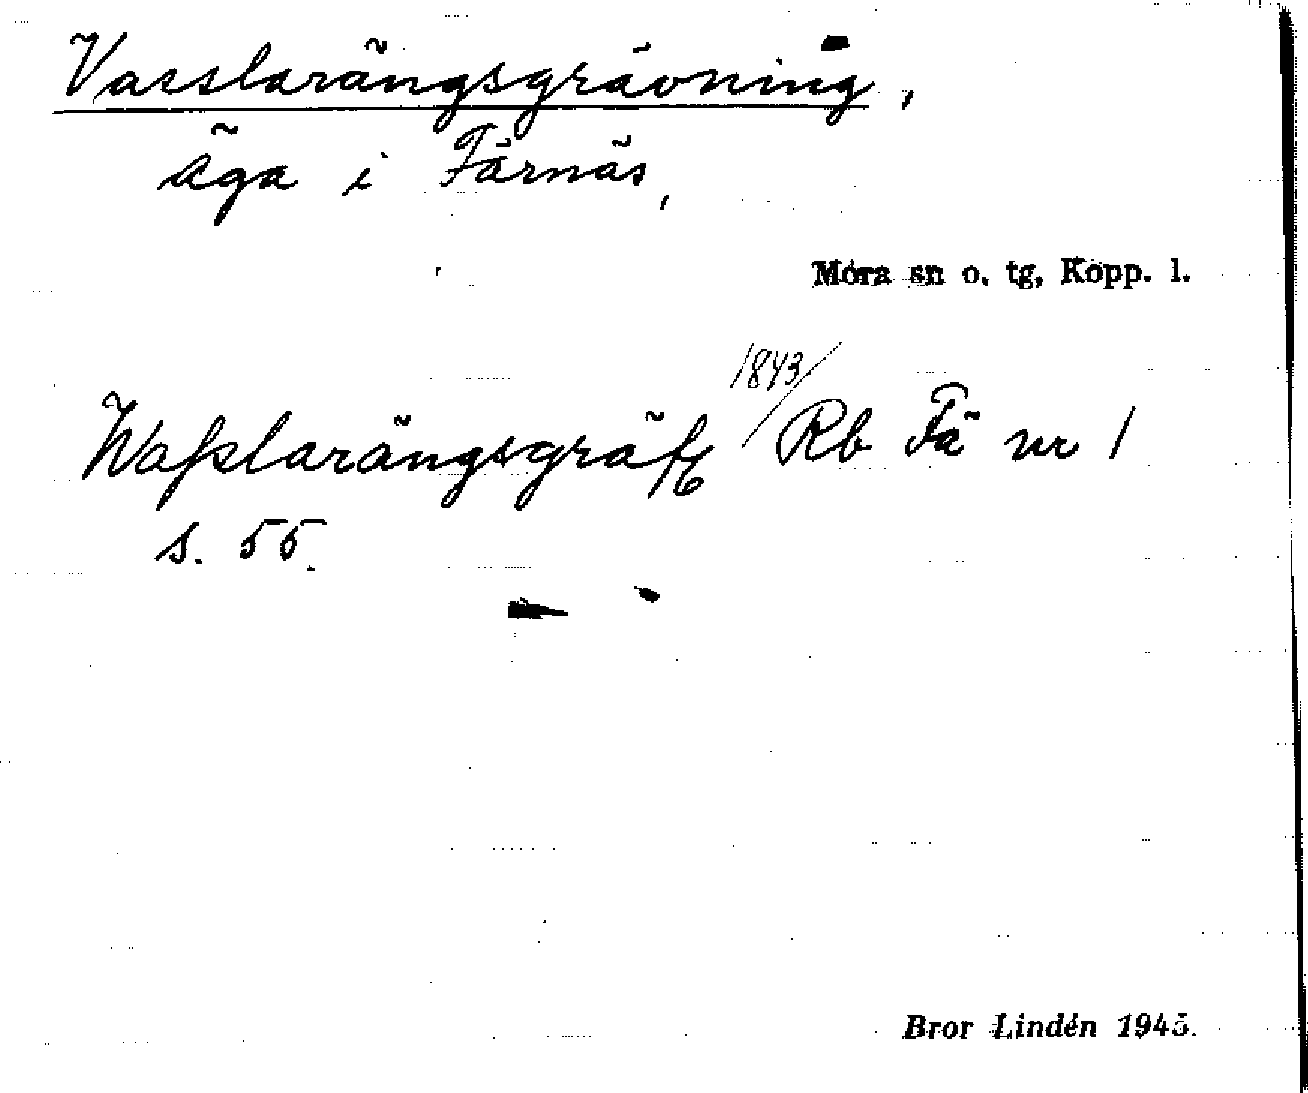 Vasslarängsgrävning,
äga i Färnäs,
Mora sn o. tg, Kopp. l.
1843/
Wasslarängsgräfg Rb Fä nr 1
s. 55.
Bror Lindén 1945.